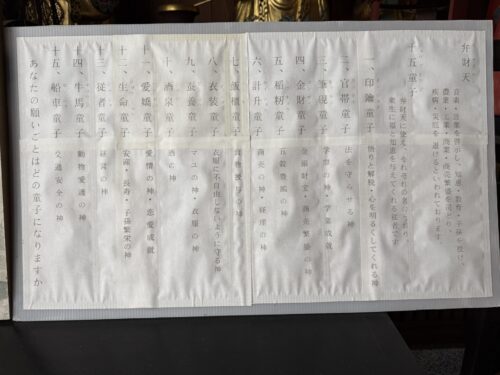 弁財天
音楽・芸楽を啓示し、知恵・教育・子孫を授け、
農業・工業・漁業・商売繁盛を司り、
疾病・災厄を退けるといわれております。
十五童子
弁財天に従え、それぞれの名に因み、
衆生に福と知恵を与えてくれる従者です
一、印鑰童子 悟りと解脱・心を明るくしてくれる神
二、官帯童子 法を守らせる神
三、筆硯童子 学問の神・学業成就
四、金財童子 金銀財宝・商売繁盛の神
五、稲籾童子 五穀豊穣の神
六、計升童子 商売の神・経理の神
七、飯櫃童子 食物授与の神
八、衣裳童子 衣服に不自由しないように守る神
九、蚕養童子 マユの神・衣服の神
十、酒泉童子 酒の神
十一、愛嬌童子 愛情の神・恋愛成就
十二、生命童子 安産・長寿・子孫繁栄の神
十三、従者童子 経営の神
十四、牛馬童子 動物愛護の神
十五、船車童子 交通安全の神
あなたの願いごとはどの童子になりますか